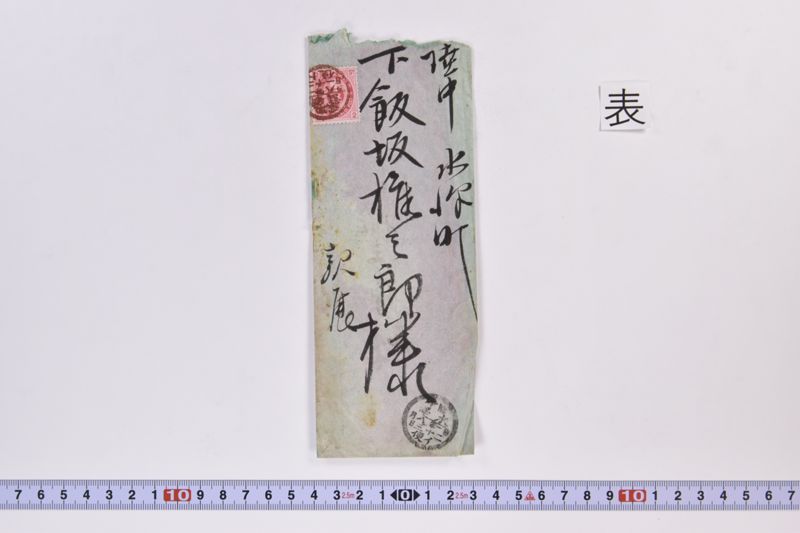 陸中 水沢町
下飯坂権三郎様
親展
表
7 6 5 4 3 2 1 10 9 8 7 6 5 4 3 2.5m 2 1 0 1 2 2.5m 3 4 5 6 7 8 9 10 1 2 3 4 5 6 7